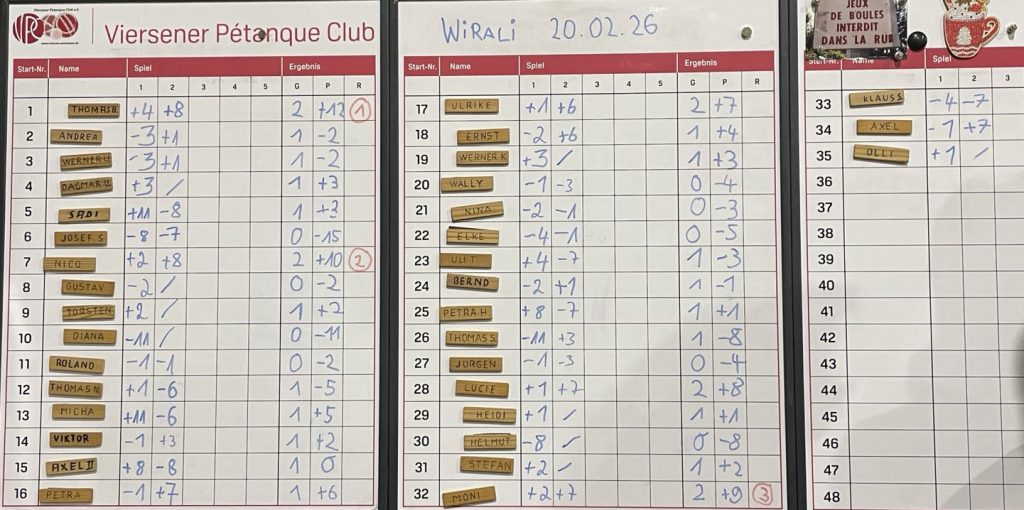 Viersener Pétanque Club e.V.
VPC
Viersener Pétanque Club
Start-Nr. Name Spiel Ergebnis
1 2 3 4 5 G P R
1 THOMAS B. +4 +8 2 +12 1
2 ANDREA -3 +1 1 -2
3 WERNER U. -3 +1 1 -2
4 DAGMAR U. +3 / 1 +3
5 SADI +11 -8 1 +3
6 JOSEF S -8 -7 0 -15
7 NICO +2 +8 2 +10 2
8 GUSTAV -2 / 0 -2
9 TORSTEN +2 / 1 +2
10 DIANA -11 / 0 -11
11 ROLAND -1 -1 0 -2
12 THOMAS N. +1 -6 1 -5
13 MICHA +11 -6 1 +5
14 VIKTOR -1 +3 1 +2
15 AXEL II +8 -8 1 0
16 PETRA -1 +7 1 +6
WiRALi 20.02.26
Start-Nr. Name Spiel Ergebnis
1 2 3 4 5 G P R
17 ULRIKE +1 +6 2 +7
18 ERNST -2 +6 1 +4
19 WERNER K +3 / 1 +3
20 WALLY -1 -3 0 -4
21 NINA -2 -1 0 -3
22 ELKE -4 -1 0 -5
23 ULI T +4 -7 1 -3
24 BERND -2 +1 1 -1
25 PETRA H. +8 -7 1 +1
26 THOMAS S. -11 +3 1 -8
27 JÜRGEN -1 -3 0 -4
28 LUCIE +1 +7 2 +8
29 HEIDI +1 / 1 +1
30 HELMUT -8 / 0 -8
31 STEFAN +2 / 1 +2
32 MONI +2 +7 2 +9 3
JEUX
DE BOULES
INTERDIT
DANS LA RUE
Start-Nr. Name Spiel
1 2 3
33 KLAUS S. -4 -7
34 AXEL -1 +7
35 OLLI +1 /
36
37
38
39
40
41
42
43
44
45
46
47
48